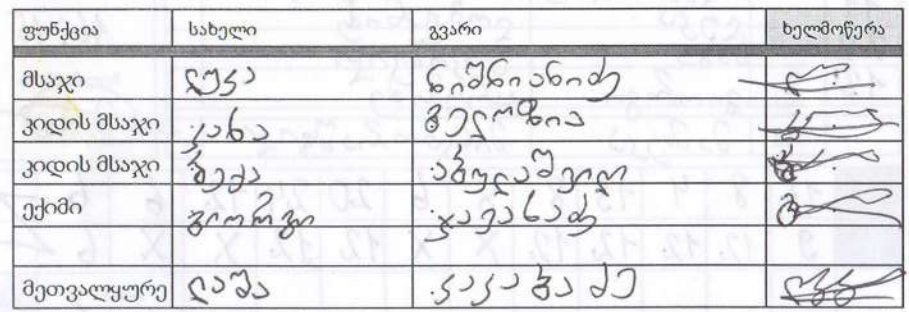 ფუნქცია სახელი გვარი ხელმოწერა
მსაჯი ლუკა
კიდის მსაჯი კახა
კიდის მსაჯი ბექა აბულაშვილი
ექიმი გიორგი ჯავახაძე
მეთვალყურე ლაშა კაკაბაძე